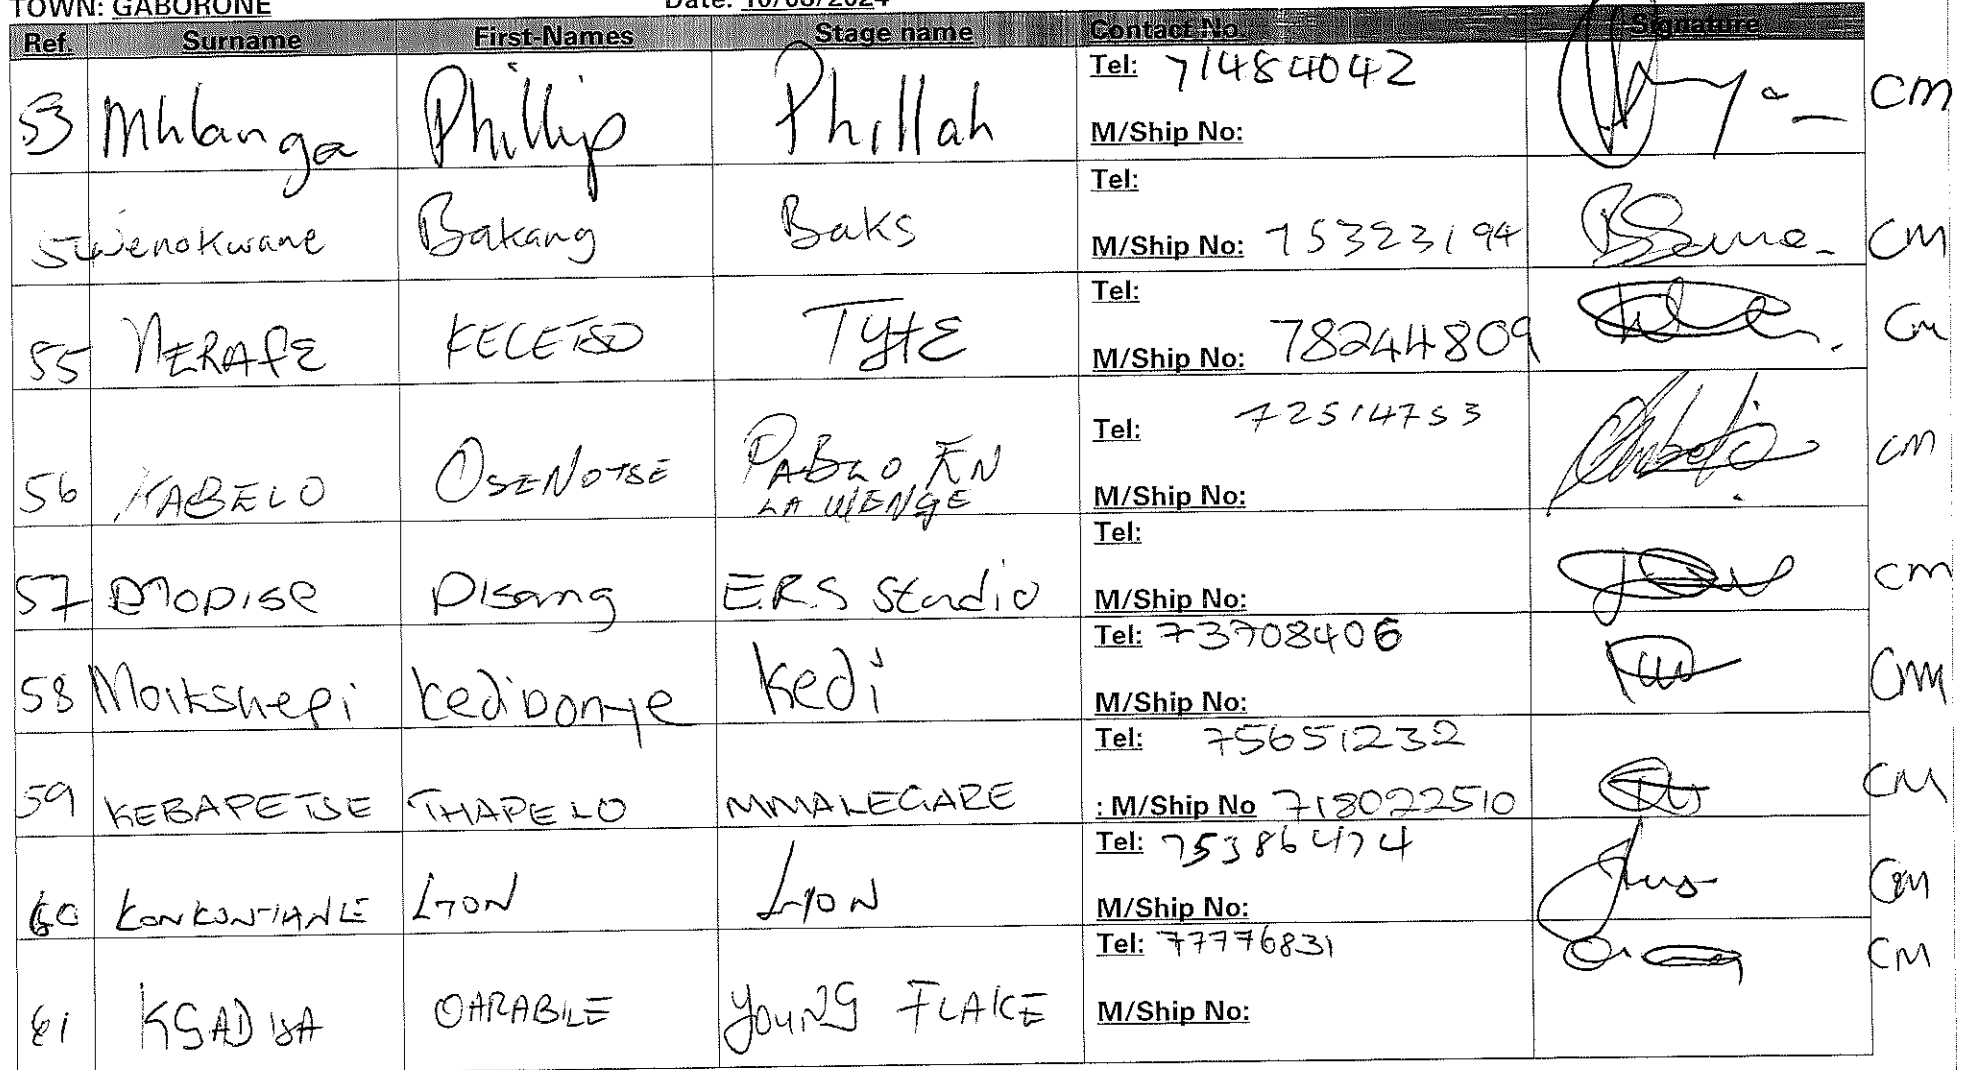 TOWN: GABORONE Date: 10/08/2024
Ref. Surname First-Names Stage name Contact No. Signature
53 Mhlanga Phillip Phillah Tel: 71484042 CM
M/Ship No:
54 Wenokwane Bakang Baks Tel:
M/Ship No: 75323194 CM
55 MERAFE KECETSO TYTE Tel:
M/Ship No: 78244809 CM
56 KABELO OSENOTSE PABLO EN Tel: 72514753 CM
LA WENGE M/Ship No:
57 MODISE Disang E.R.S Studio Tel:
M/Ship No: CM
58 Morkshepi kedibonye kedi Tel: 73708406
M/Ship No: CM
59 KEBAPETSE THAPELO MMALEGARE Tel: 75651232
: M/Ship No 718022510 CM
60 LYON LYON Tel: 75386474
M/Ship No: CM
61 OARABILE YOUNG FLAKE Tel: 77776831 CM
M/Ship No: